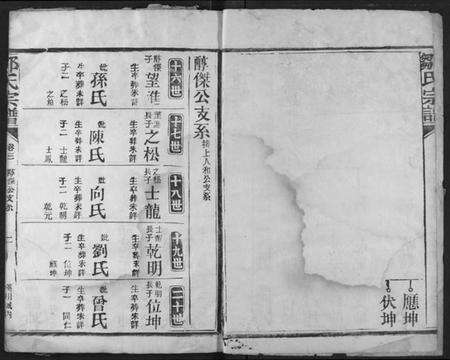 鄒氏宗譜
應坤
伏坤
醇傑公支系 接上人和公支系
十六世
醇傑長子 望淮
生卒葬未詳
妣 孫氏
生卒葬未詳
子二 之松
十七世
望淮長子 之松
生卒葬未詳
妣 陳氏
生卒葬未詳
子二 士龍 士鳳
十八世
之松長子 士龍
生卒葬未詳
妣 向氏
生卒葬未詳
子二 乾明 乾元
十九世
士龍長子 乾明
生卒葬未詳
妣 劉氏
生卒葬未詳
子二 位坤
二十世
乾明長子 位坤
生卒葬未詳
妣 曾氏
生卒葬未詳
子一
鄒氏宗譜
卷三
公支系
一